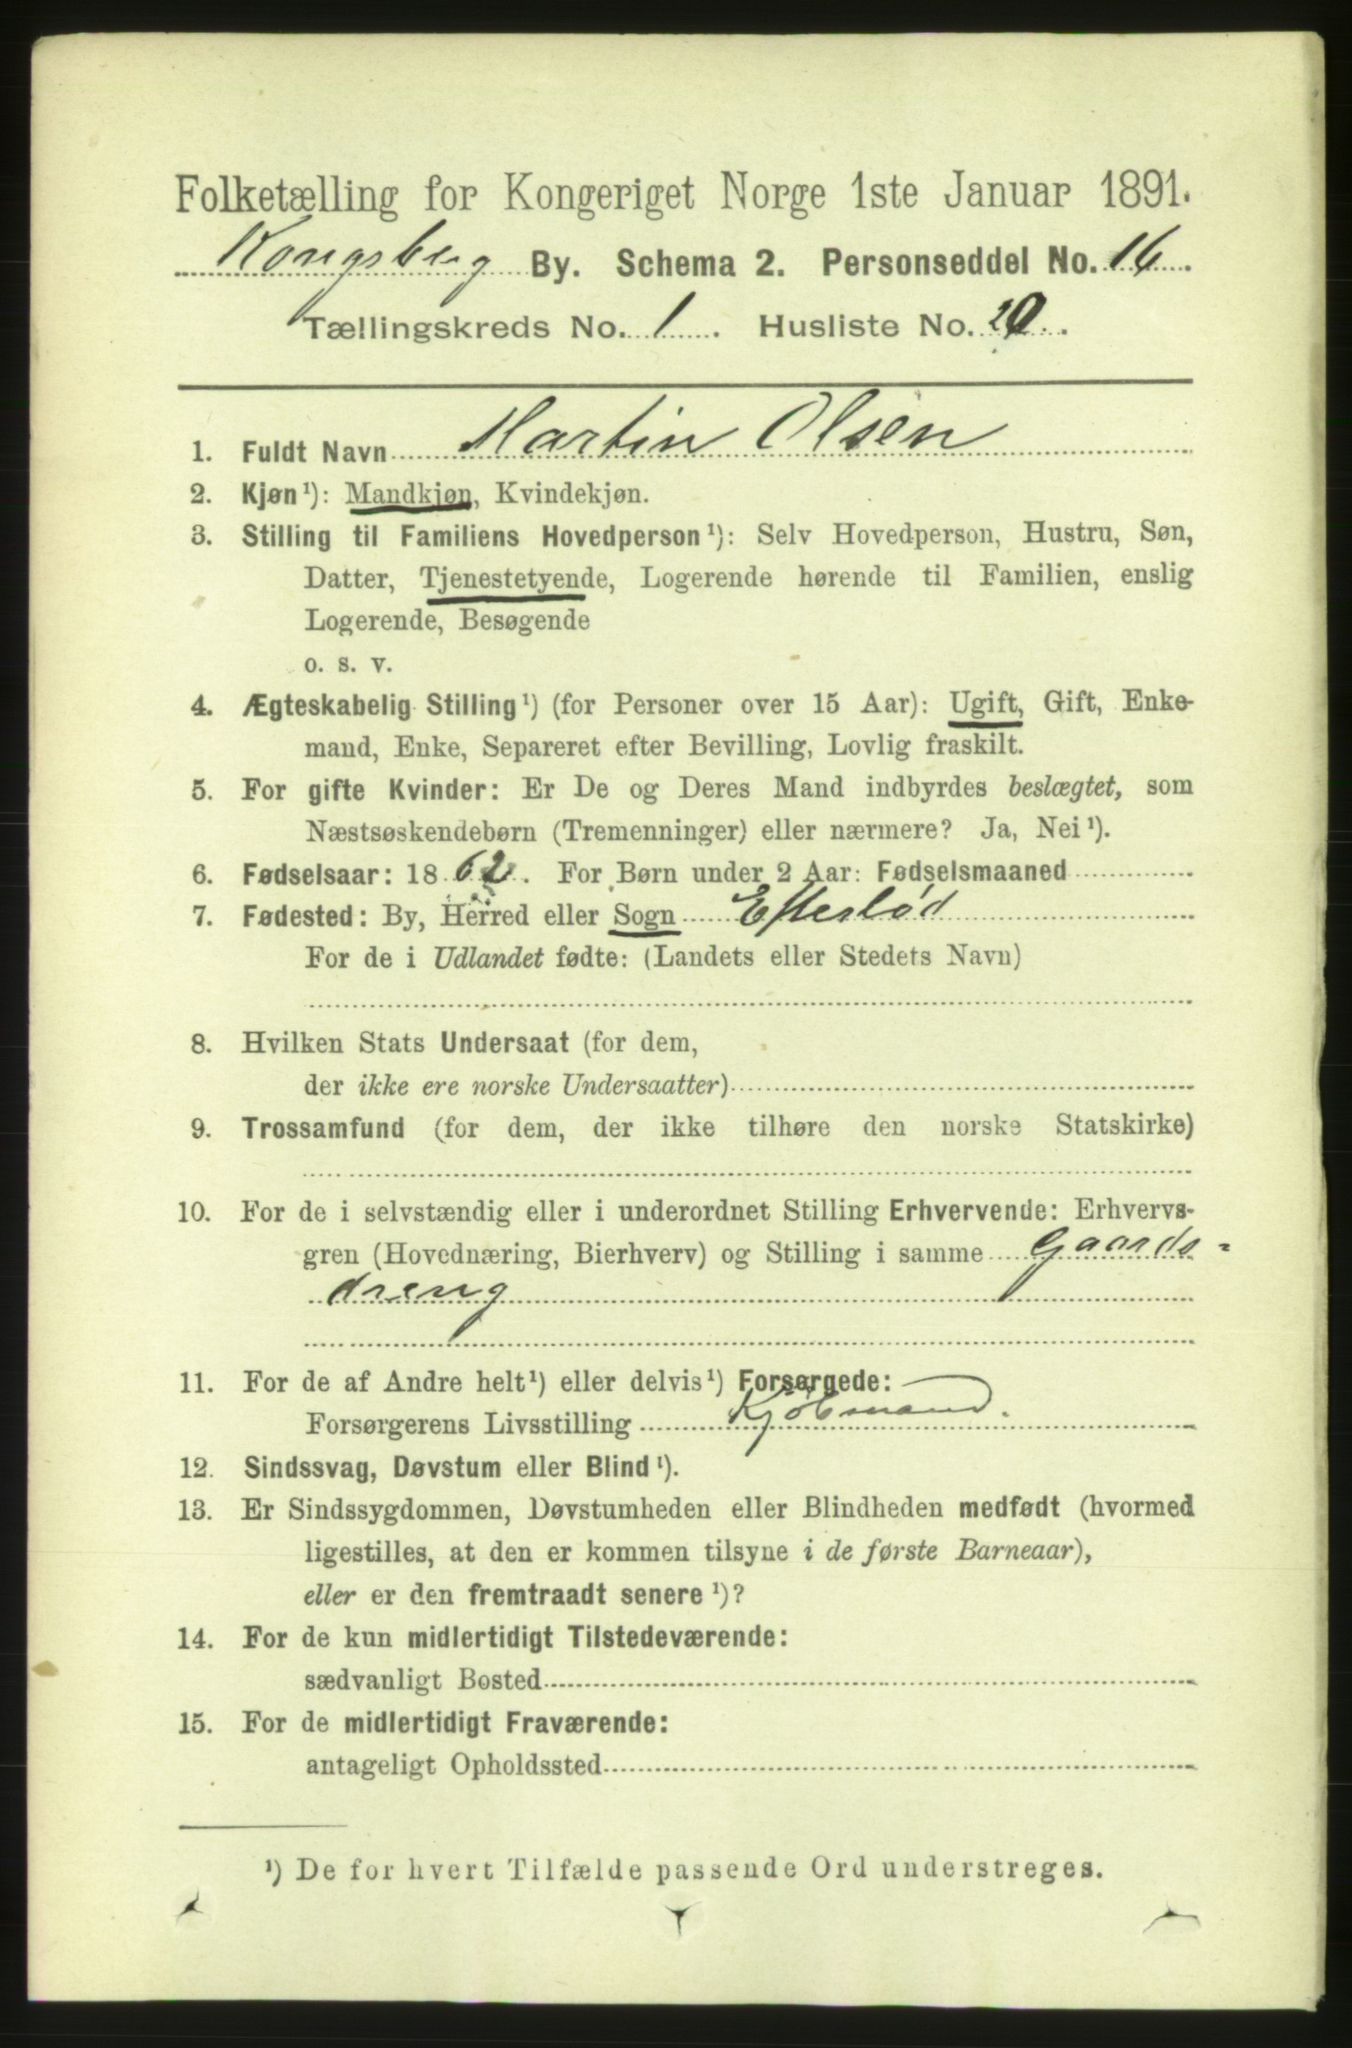 Folketælling for Kongeriget Norge 1ste Januar 1891.
Kongsberg By. Schema 2. Personseddel No. 16.
Tællingskreds No. 1. Husliste No. 20.
1. Fuldt Navn Martin Olsen
2. Kjøn¹): Mandkjøn, Kvindekjøn.
3. Stilling til Familiens Hovedperson¹): Selv Hovedperson, Hustru, Søn,
Datter, Tjenestetyende, Logerende hørende til Familien, enslig
Logerende, Besøgende
o. s. v.
4. Ægteskabelig Stilling¹) (for Personer over 15 Aar): Ugift, Gift, Enke-
mand, Enke, Separeret efter Bevilling, Lovlig fraskilt.
5. For gifte Kvinder: Er De og Deres Mand indbyrdes beslægtet, som
Næstsøskendebørn (Tremenninger) eller nærmere? Ja, Nei¹).
6. Fødselsaar: 1862. For Børn under 2 Aar: Fødselsmaaned
7. Fødested: By, Herred eller Sogn Efterlød
For de i Udlandet fødte: (Landets eller Stedets Navn)
8. Hvilken Stats Undersaat (for dem,
der ikke ere norske Undersaatter)
9. Trossamfund (for dem, der ikke tilhøre den norske Statskirke)
10. For de i selvstændig eller i underordnet Stilling Erhvervende: Erhvervs-
gren (Hovednæring, Bierhverv) og Stilling i samme Gaards-
dreng
11. For de af Andre helt¹) eller delvis¹) Forsørgede:
Forsørgerens Livsstilling Kjøbmand.
12. Sindssvag, Døvstum eller Blind¹).
13. Er Sindssygdommen, Døvstumheden eller Blindheden medfødt (hvormed
ligestilles, at den er kommen tilsyne i de første Barneaar),
eller er den fremtraadt senere¹)?
14. For de kun midlertidigt Tilstedeværende:
sædvanligt Bosted
15. For de midlertidigt Fraværende:
antageligt Opholdssted
¹) De for hvert Tilfælde passende Ord understreges.